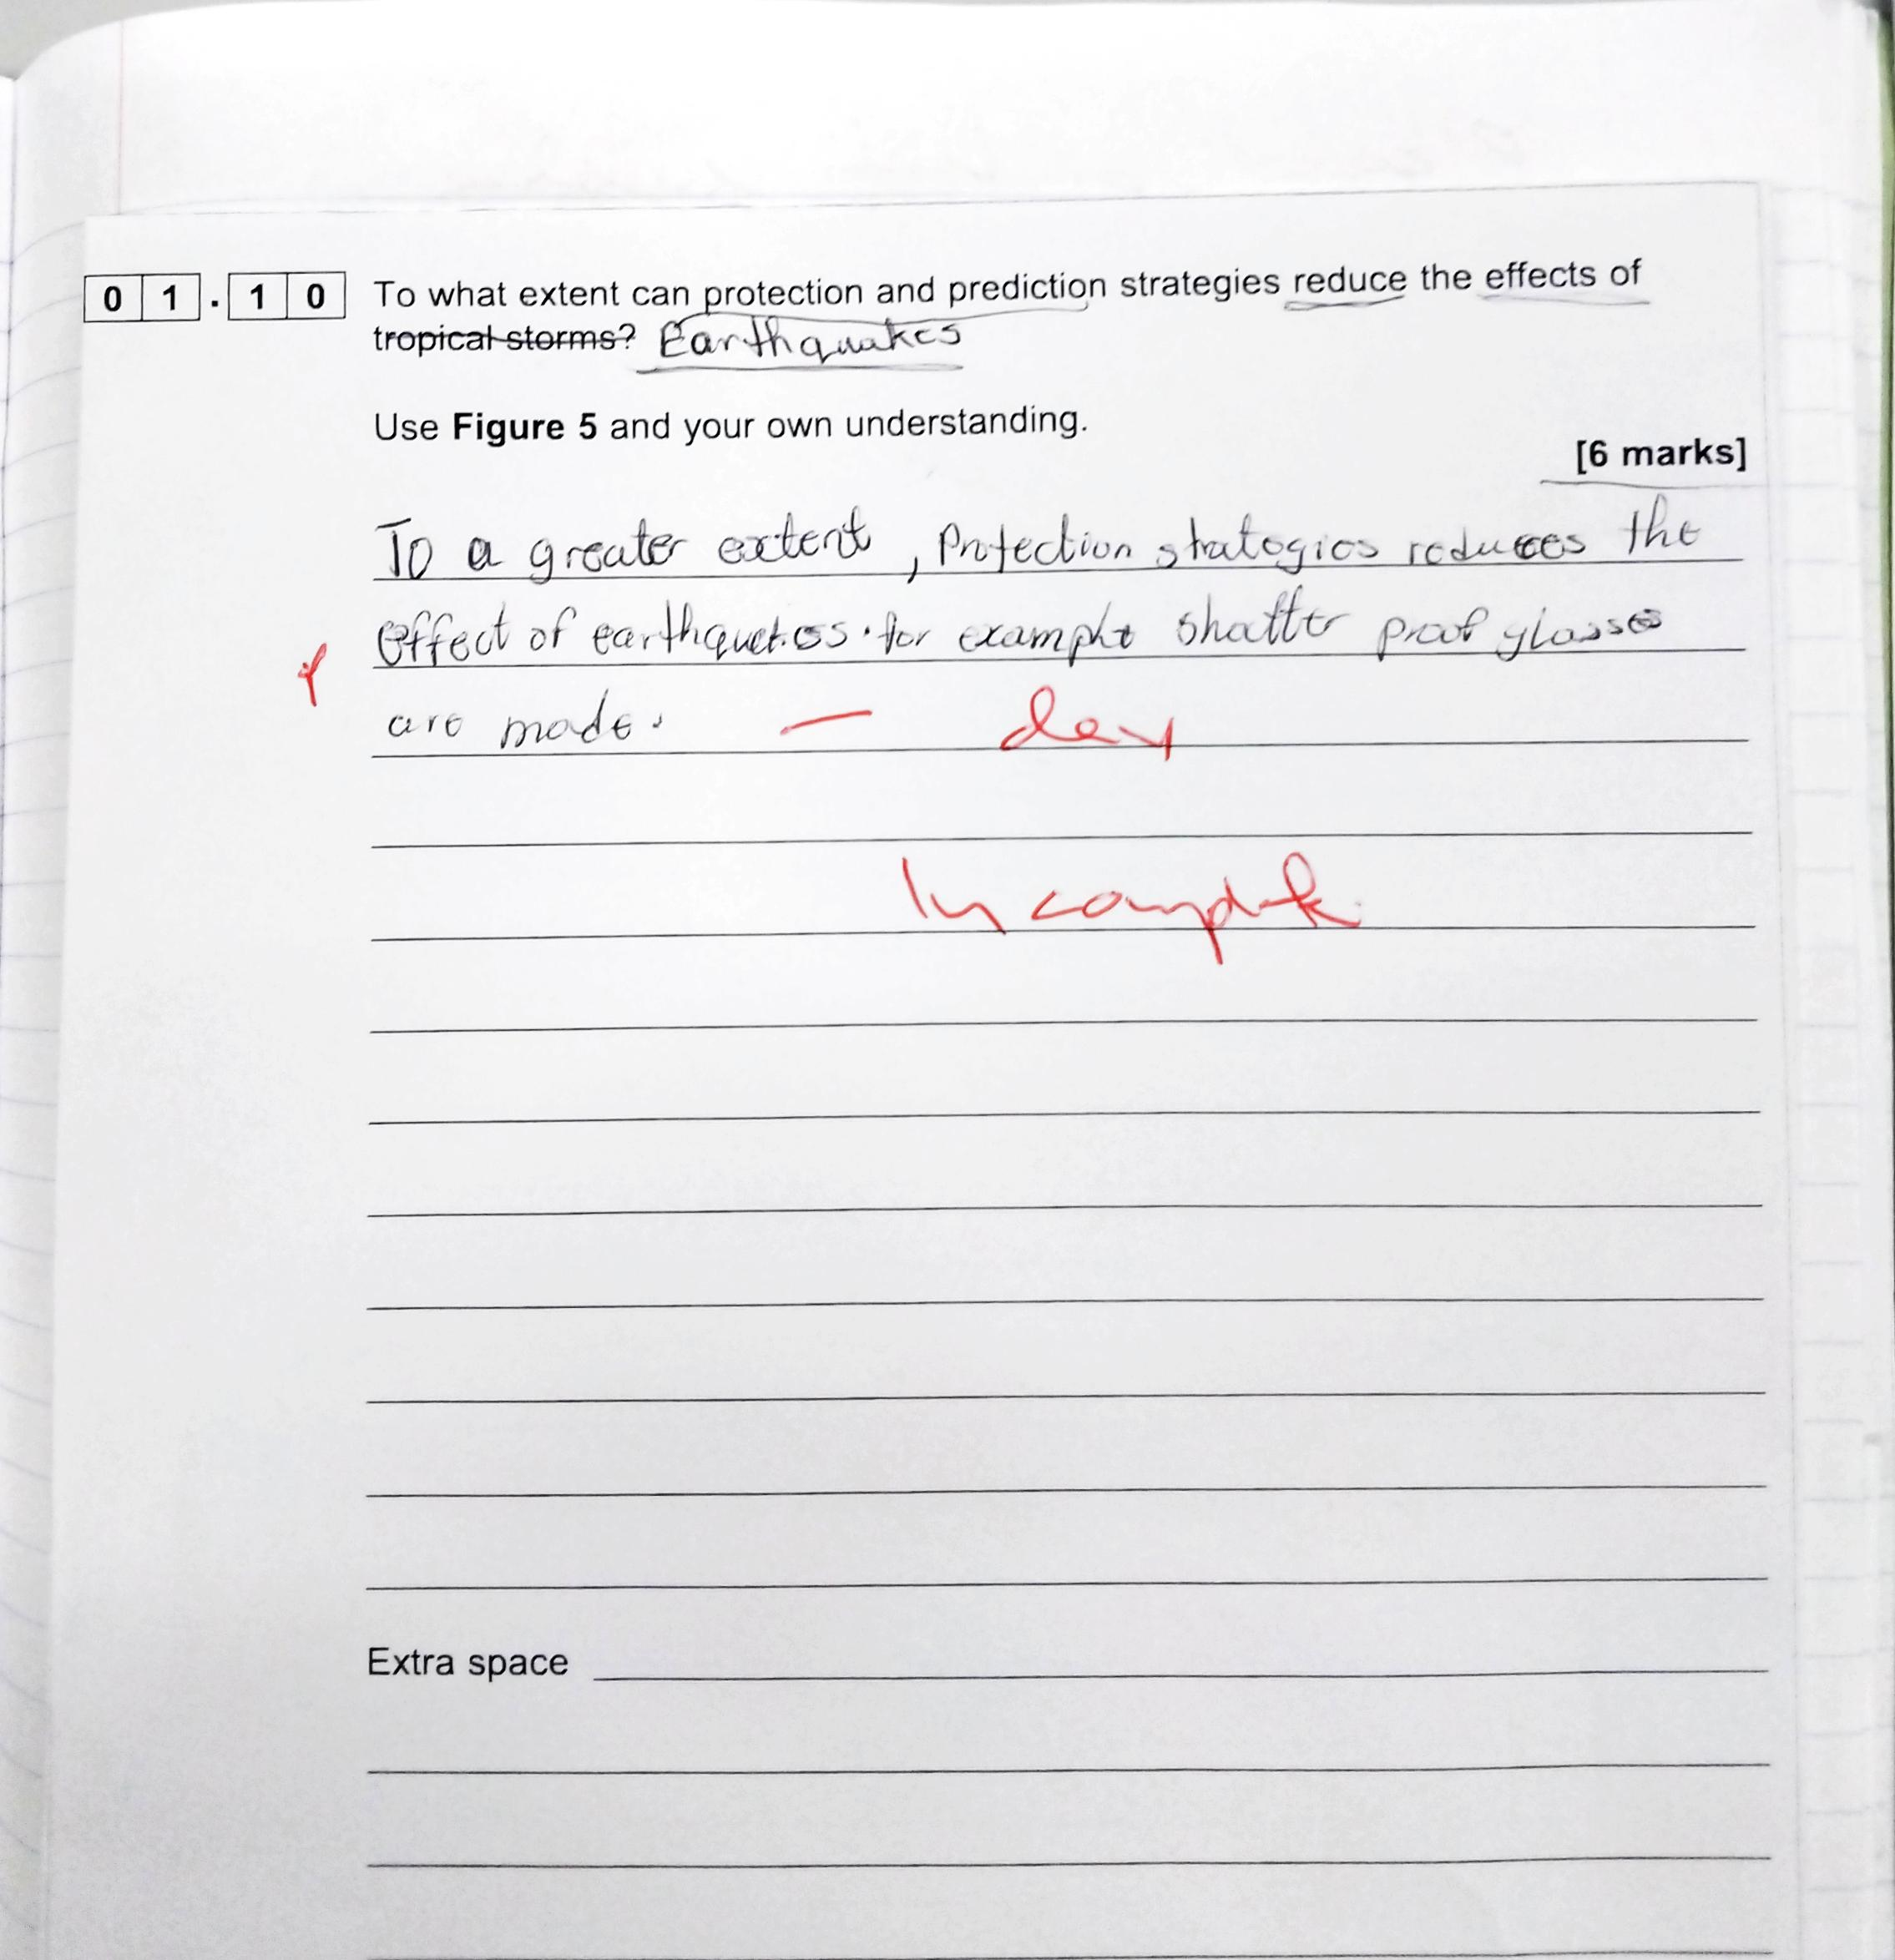 01.10 To what extent can protection and prediction strategies reduce the effects of
tropical storms? Earthquakes
Use Figure 5 and your own understanding.
[6 marks]
To a greater extent, Protection strategies reduces the
effect of earthquakes. for example shatter proof glasses
are made.
dev
Incomplete
Extra space